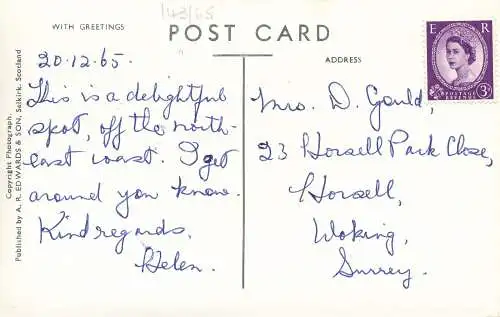 143/65
WITH GREETINGS
POST CARD
20.12.65.
This is a delightful
spot, off the north-
east coast. I get
around you know.
Kind regards,
Helen.
Copyright Photograph.
Published by A. R. EDWARDS & SON, Selkirk, Scotland
ADDRESS
Mrs. D. Gould,
23 Horsell Park Close,
Horsell,
Woking,
Surrey.
E R
POSTAGE
REVENUE
3D